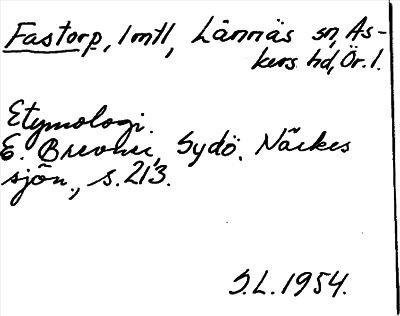 Fastorp, 1 mtl, Lännäs sn, As-
kers hd, Ör. l.
Etymologi.
E. Brevner, Sydö. Närkes
sjön., s. 213.
S.L. 1954.